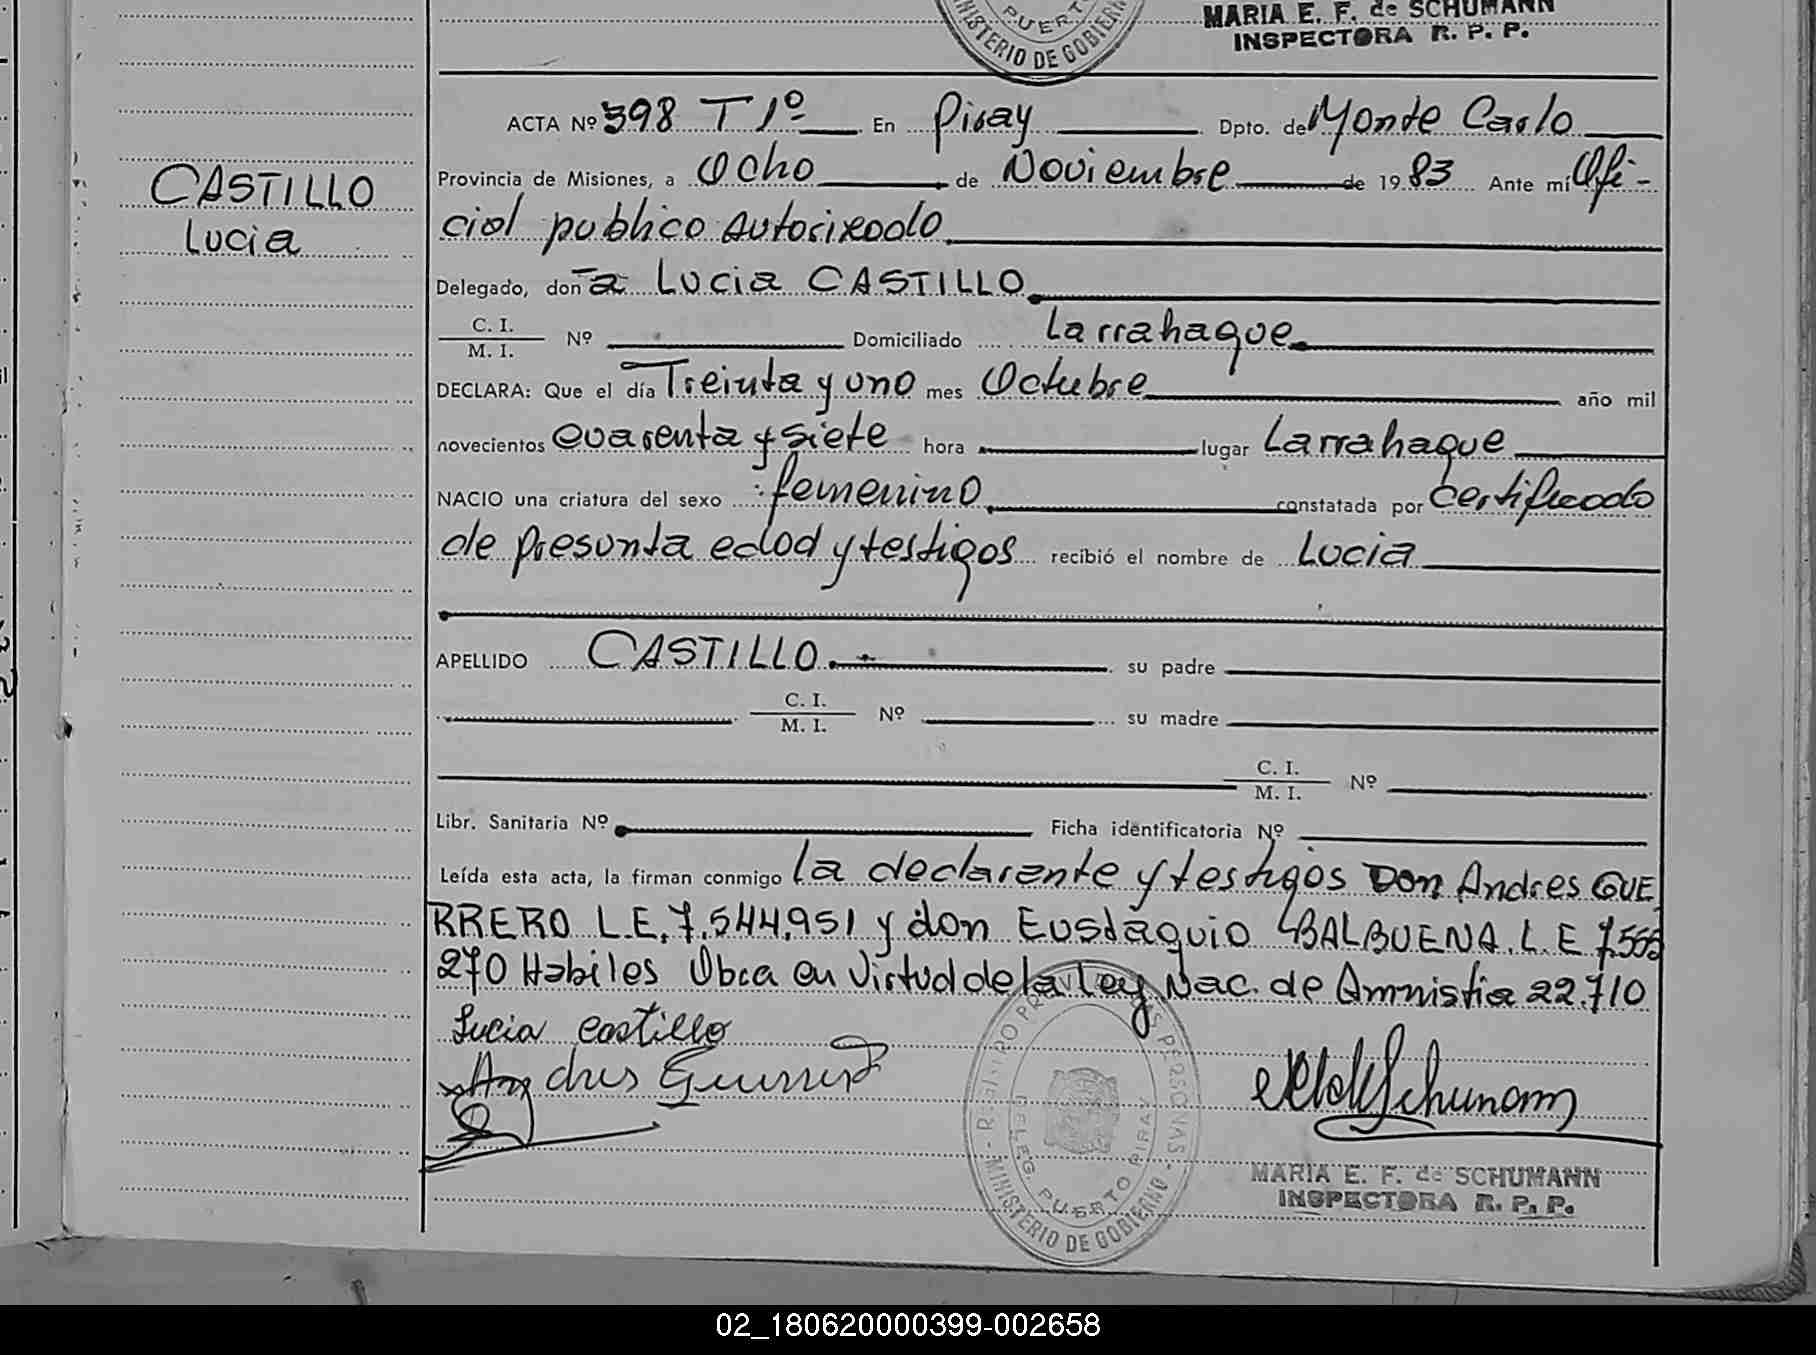 PUERTO
MINISTERIO DE GOBIERNO
MARIA E. F. de SCHUMANN
INSPECTORA R. P. P.
CASTILLO
Lucia
ACTA Nº 398 T 1º En Piray Dpto. de Monte Carlo
Provincia de Misiones, a Ocho de Noviembre de 1983 Ante mi Ofi-
cial publico Autorizado
Delegado, doña Lucia CASTILLO
C. I.
M. I. Nº Domiciliado Larrahague
DECLARA: Que el día Treinta y uno mes Octubre año mil
novecientos cuarenta y siete hora lugar Larrahague
NACIO una criatura del sexo femenino constatada por certificado
de presunta edad y testigos recibió el nombre de Lucia
APELLIDO CASTILLO su padre
C. I.
M. I. Nº su madre
C. I.
M. I. Nº
Libr. Sanitaria Nº Ficha identificatoria Nº
Leída esta acta, la firman conmigo la declarante y testigos Don Andres GUE
RRERO L.E. 7.544.951 y don Eustaquio BALBUENA. L. E
270 Habiles Obra en Virtud de la Ley Nac. de Amnistia 22.710
Lucia Castillo
Andres Guerrero
REGISTRO PROVINCIAL DE LAS PERSONAS
DELEG. PUERTO PIRAY
MINISTERIO DE GOBIERNO
MARIA E. F. de SCHUMANN
INSPECTORA R. P. P.
02_180620000399-002658